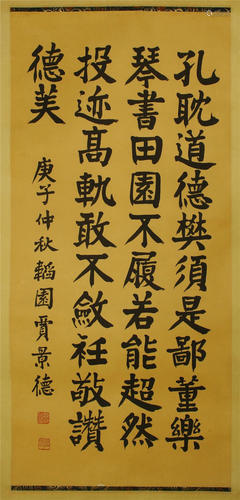 孔耽道德樊須是鄙董樂
琴書田園不履若能超然
投迹高軌敢不斂衽敬讚
德美
庚子仲秋韜園賈景德